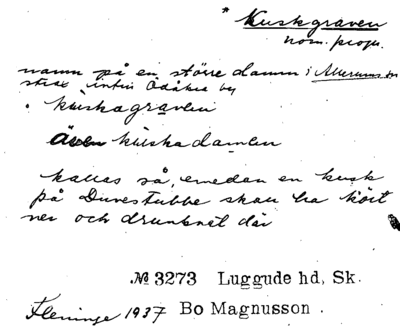 * Kuskgraven
nom. propr.
namn på en större damm i Allerums sn
strax intill Ödåkra by
. kuskagraven
även kuskadammen
kallas så, emedan en kusk
på Duvestubbe skall ha kört
ner och drunknat där
№ 3273 Luggude hd, Sk.
Fleninge 1937 Bo Magnusson .